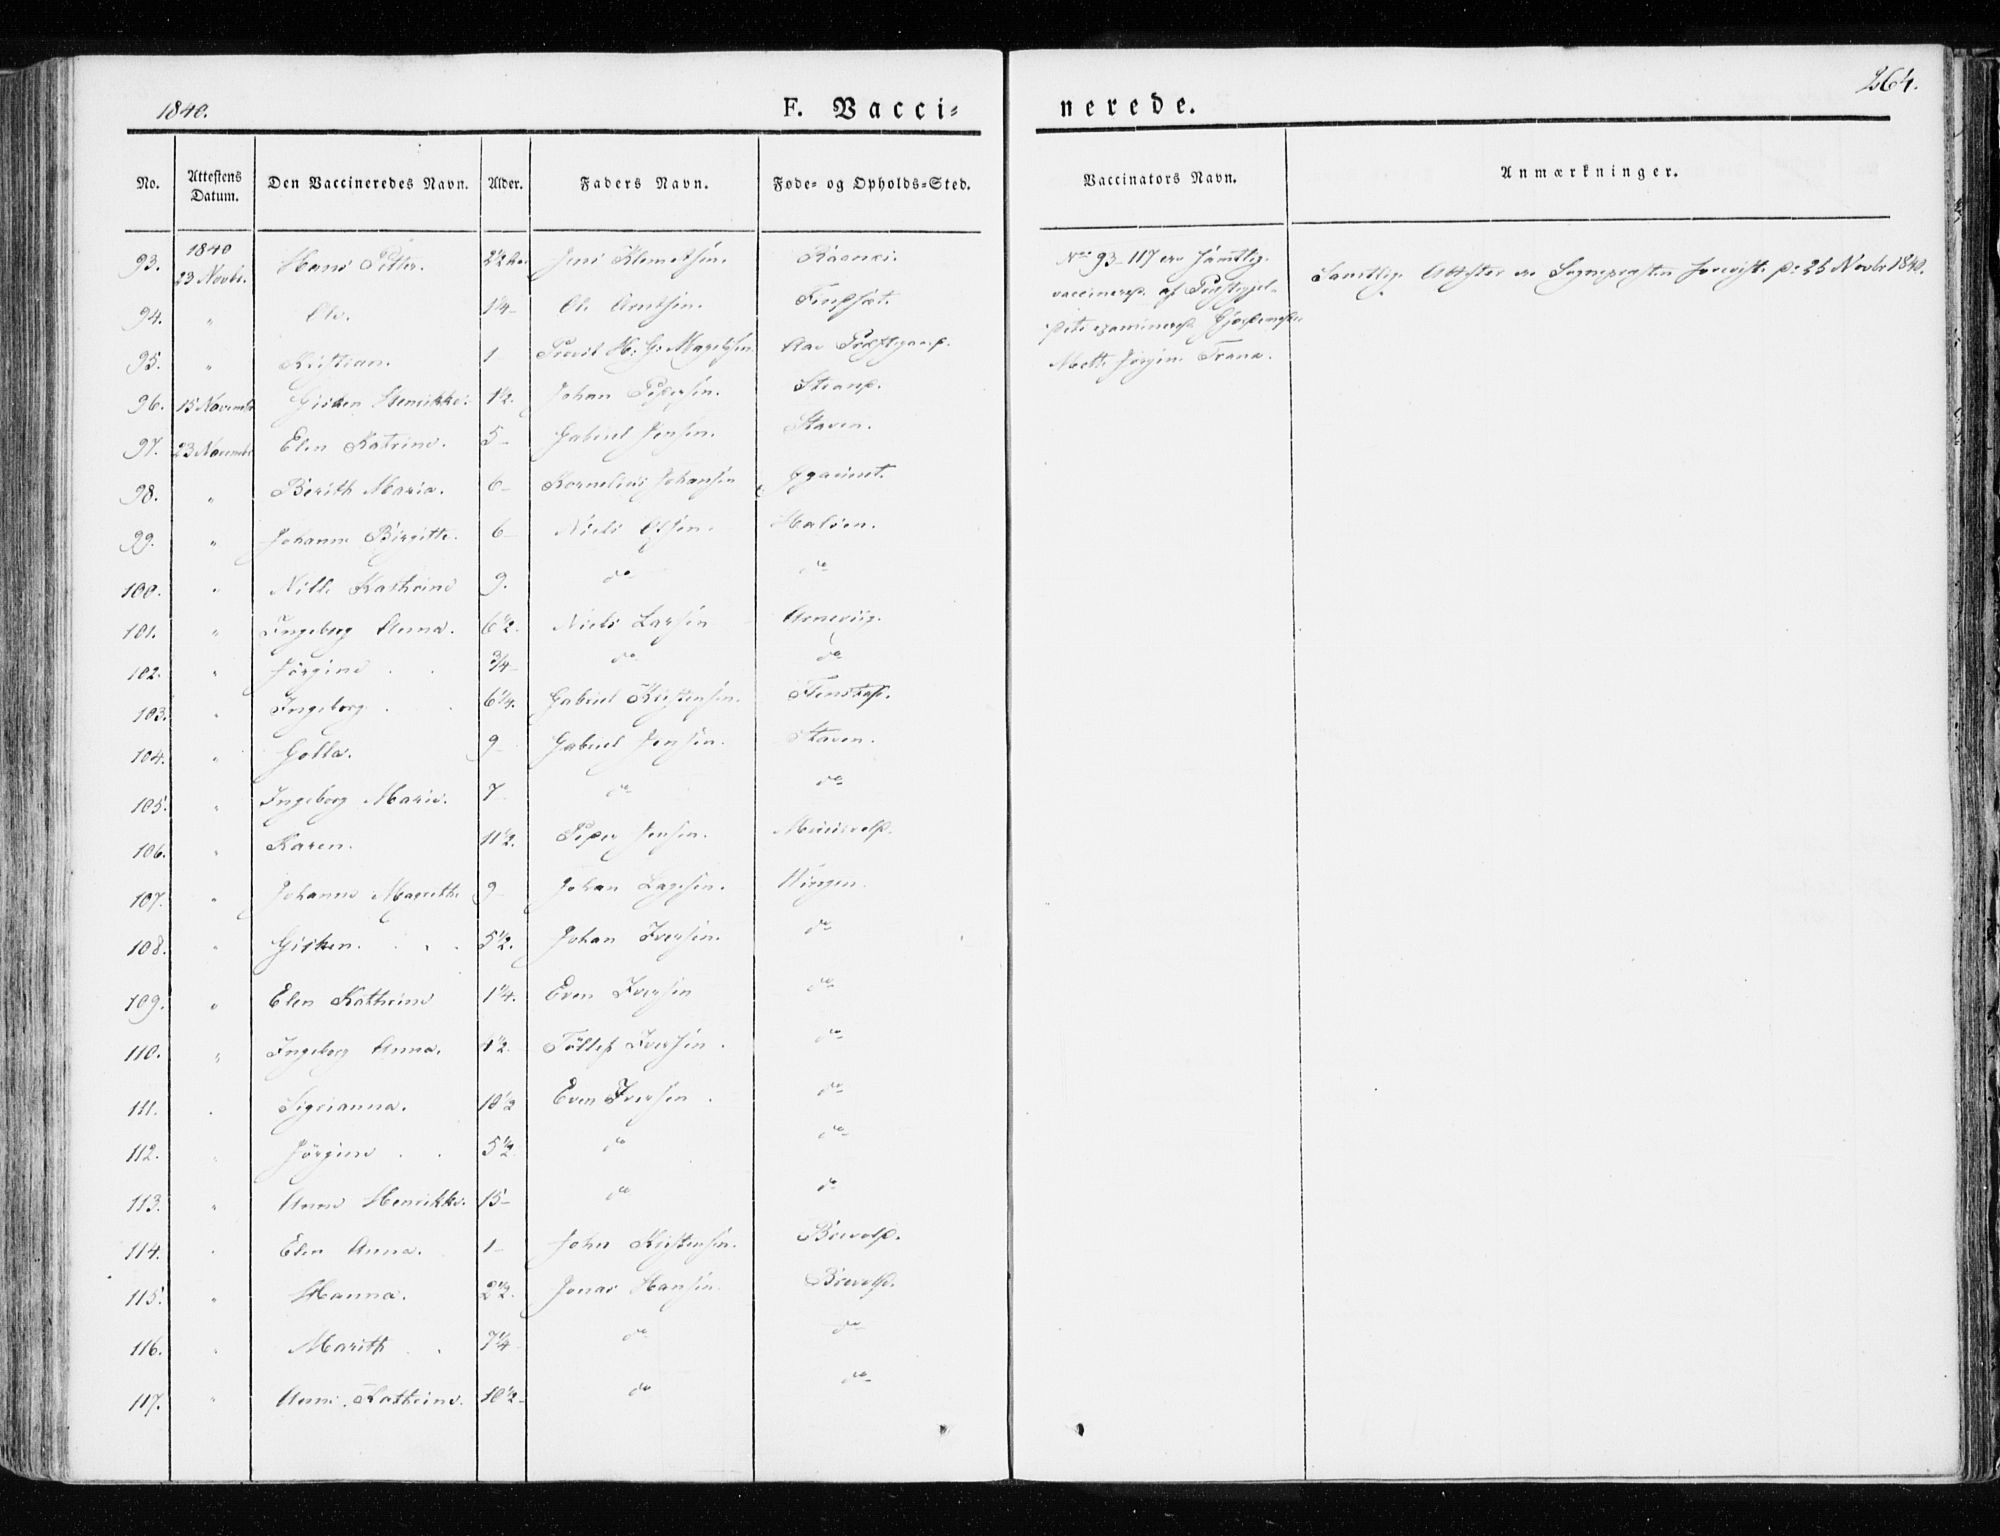 1840. F. Vacci= nerede. 264.
No. Attestens Datum. Den Vaccineredes Navn. Alder. Faders Navn. Føde- og Opholds=Sted. Vaccinators Navn. Anmærkninger.
93. 1840 23 Novbr. Hans Petter. 2½ Jens Klemetsen.
No 93-117 ere samtlig
vaccinerede af
Samtlige Attester ere Sognepræsten foreviste d: 25 Novbr 1840.
94. " Ole. 1¼ Ole Arntsen.
examinerede
95. " Kristian. 1 Provst H. G:
Jørgen Trana.
96. 15 November Gisken Henrikke. 1½. Johan Pedersen. Strand.
97. 23 November Elen Katrine. 5 Gabriel Jensen. Staven.
98. " Berith Maria. 6 Kornelius Johansen
99. " Johanne Birgitte. 6 Niels Halsen.
100. " Kathrine 9. do do
101. " Ingeborg Anna. 6½. Niels Larsen Arnevig.
102. " Jørgine ¾ do do
103. " Ingeborg 6¼. Gabriel Kristensen. Flenstad.
104. " Golla. 9 Gabriel Jensen. Staven.
105. " Ingeborg Marie. 7 do do
106. " Karen. 11½. Peder Jensen.
107. " Johanne Magrethe 9 Johan Wingen.
108. " Gisken. 5½. Johan Iversen. do
109. " Elen Kathrine 1¼. Even Iversen do
110. " Ingeborg Anna. Tøllef Iversen. do
111. Sigrianna. 10½ Even Iversen. do
112. " Jørgine 5½ do do
113. " Anne Henrikke. 15 do do
114. Elen Anna. 1 John Kristensen. Brevold.
115. " Hanna. 2½. Jonas Hansen. Brevold.
116. Marith 7¼ do do
117. " Anne Kathrine. 10½ do do